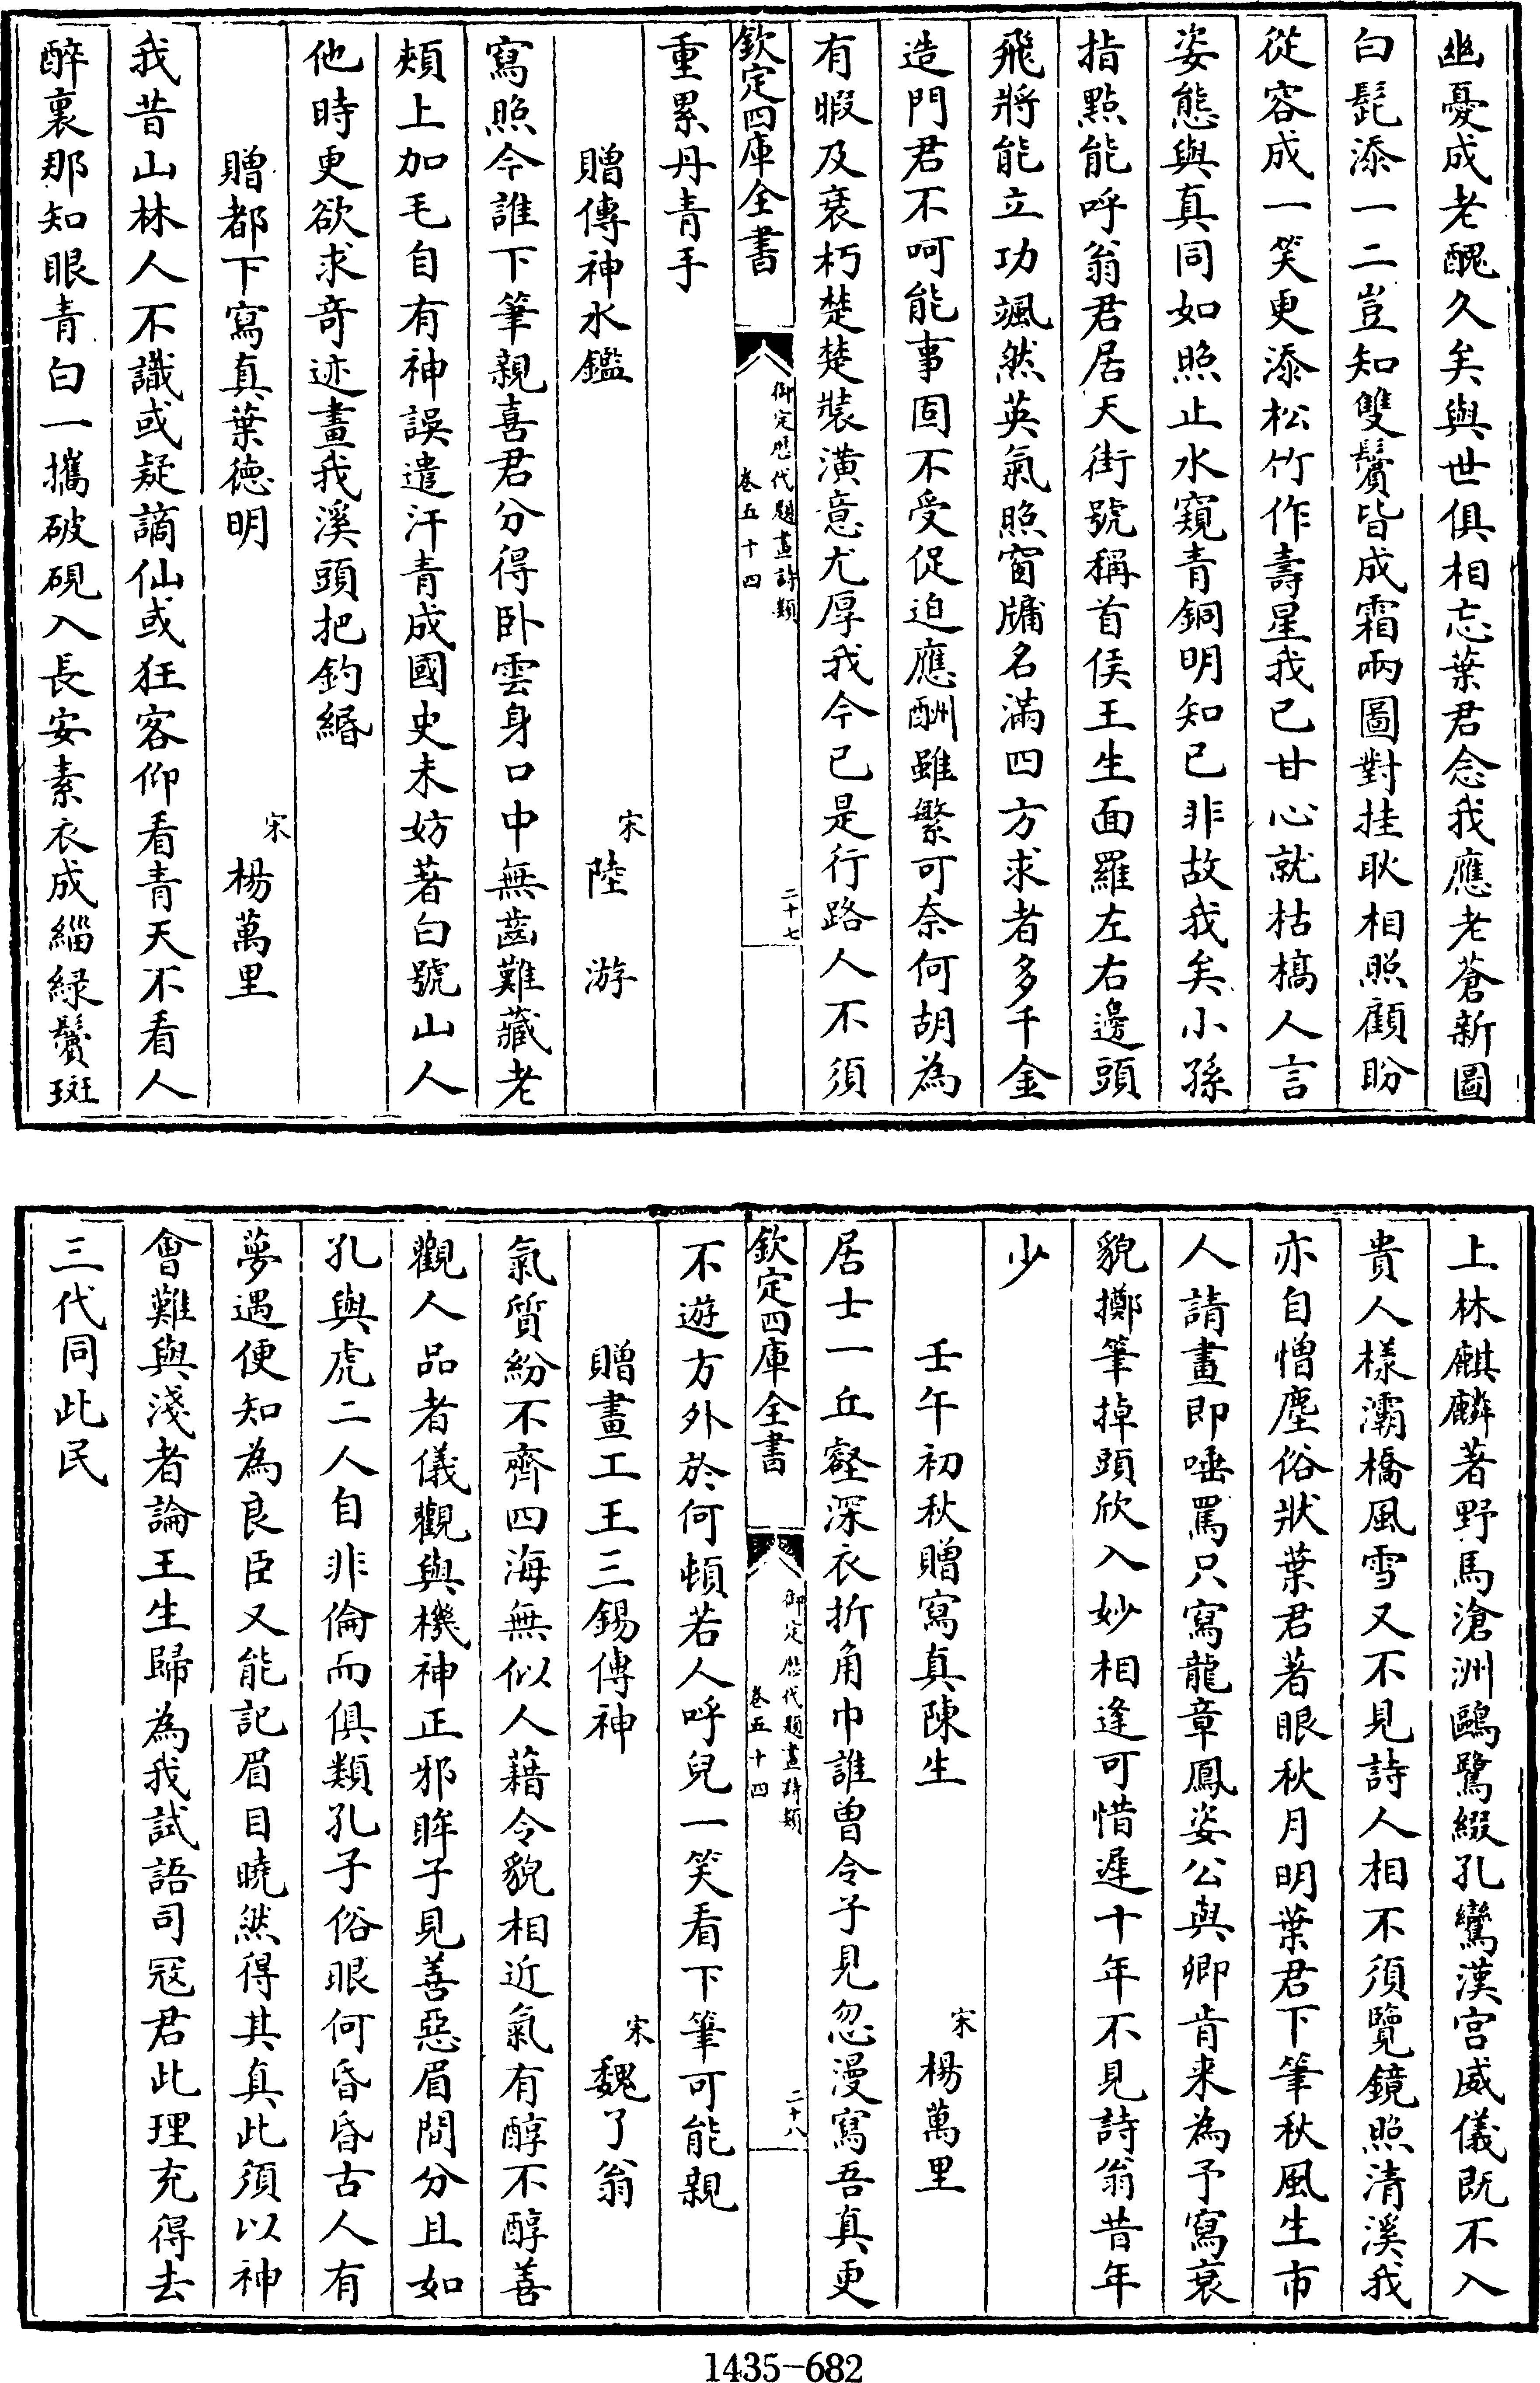 幽憂成老醜久矣與世俱相忘葉君念我應老蒼新圖
白髭添一二豈知雙鬢皆成霜兩圖對挂耿相照顧盼
從容成一笑更添松竹作壽星我已甘心就枯槁人言
姿態與真同如照止水窺青銅明知已非故我矣小孫
指點能呼翁君居天街號稱首侯王生面羅左右邊頭
飛將能立功颯然英氣照窗牖名滿四方求者多千金
造門君不呵能事固不受促迫應酬雖繁可奈何胡為
有暇及衰朽楚楚裝潢意尤厚我今已是行路人不須
欽定四庫全書
御定歷代題畫詩類
卷五十四
二十七
重累丹青手
贈傳神水鑑
宋
陸游
寫照今誰下筆親喜君分得卧雲身口中無齒難藏老
頰上加毛自有神誤遣汗青成國史未妨著白號山人
他時更欲求奇迹畫我溪頭把釣緡
贈都下寫真葉德明
宋
楊萬里
我昔山林人不識或疑謫仙或狂客仰看青天不看人
醉裏那知眼青白一攜破硯入長安素衣成緇緑鬢斑
上林麒麟著野馬滄洲鷗鷺綴孔鸞漢宫威儀既不入
貴人樣灞橋風雪又不見詩人相不須覽鏡照清溪我
亦自憎塵俗狀葉君著眼秋月明葉君下筆秋風生市
人請畫即唾罵只寫龍章鳳姿公與卿肯来為予寫衰
貌擲筆掉頭欣入妙相逢可惜遲十年不見詩翁昔年
少
壬午初秋贈寫真陳生
宋
楊萬里
居士一丘壑深衣折角巾誰曽令子見忽漫寫吾真更
欽定四庫全書
御定歷代題畫詩類
卷五十四
二十八
不遊方外於何頓若人呼兒一笑看下筆可能親
贈畫工王三錫傳神
宋
魏了翁
氣質紛不齊四海無似人藉令貌相近氣有醇不醇善
觀人品者儀觀與機神正邪眸子見善惡眉間分且如
孔與虎二人自非倫而俱類孔子俗眼何昏昏古人有
夢遇便知為良臣又能記眉目曉然得其真此須以神
會難與淺者論王生歸為我試語司冦君此理充得去
三代同此民
1435-682